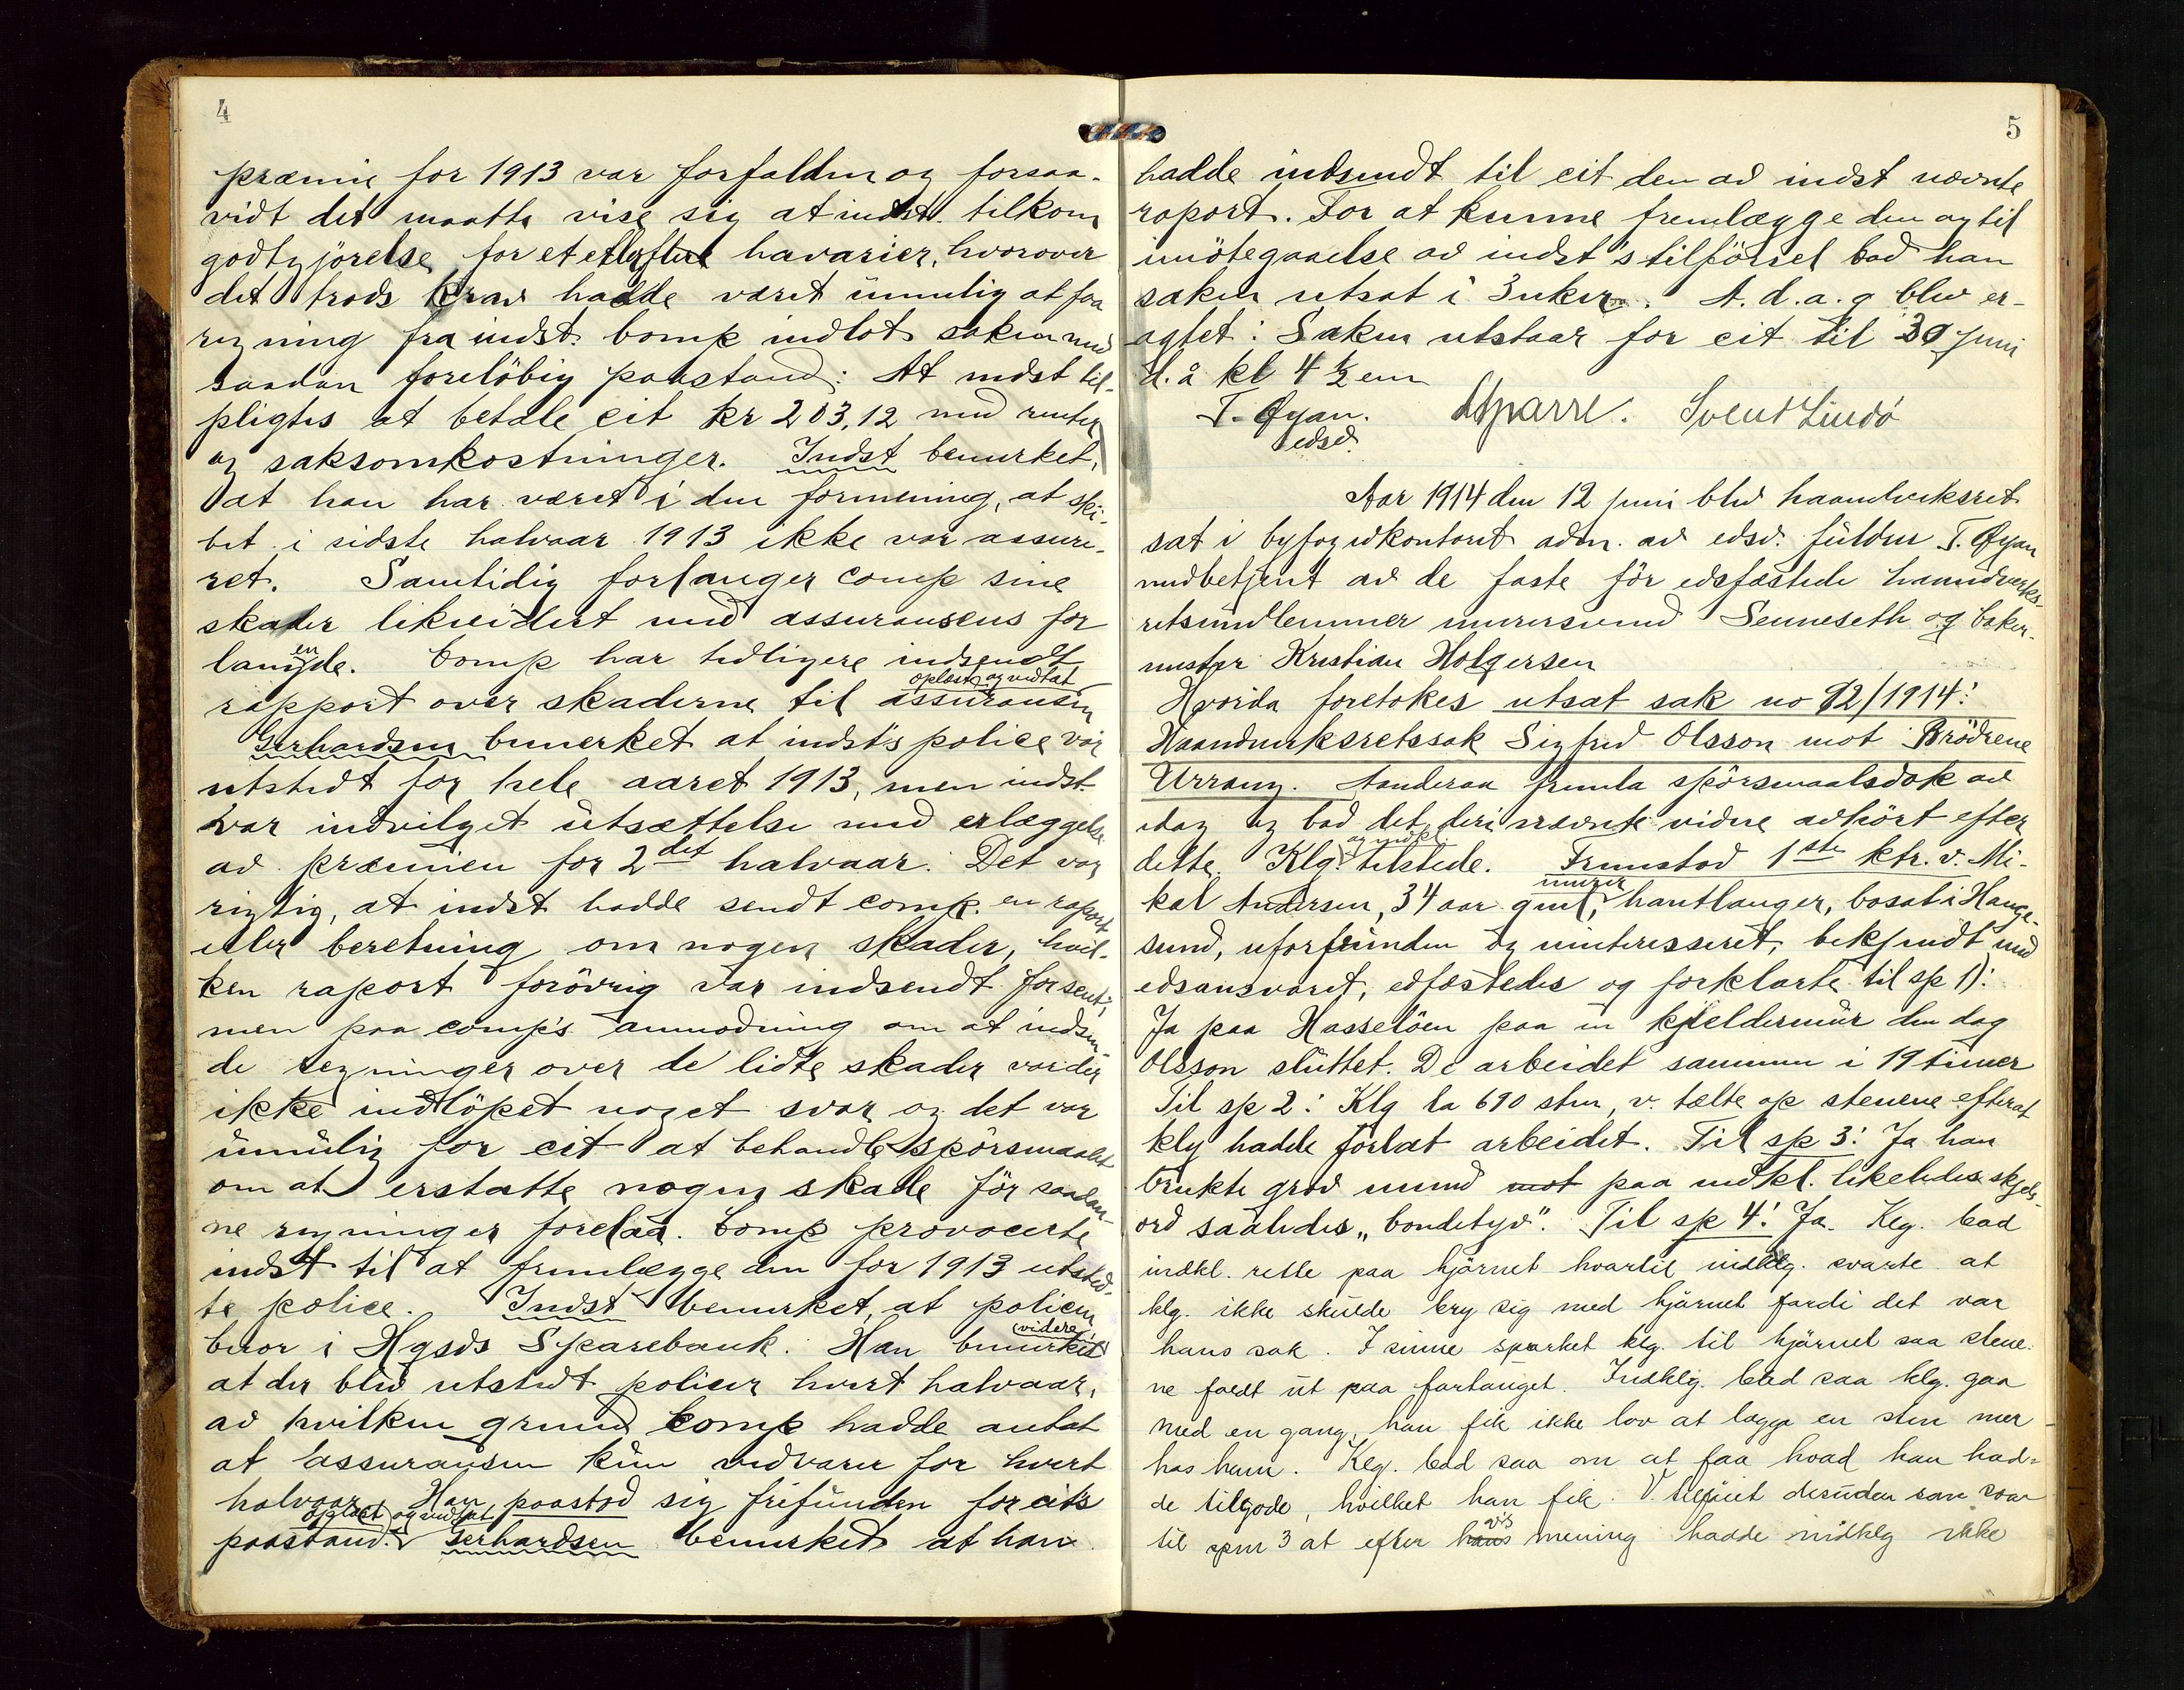 4
præmie for 1913 var forfalden og forsaa-
vidt det maatte vise sig at indst. tilkom
godtgjörelse for et etleftere havarier, hvorover
det trods krav hadde været umulig at faa
regning fra indst. Comp indlot saken med
saadan forelöbig paastand: At indst til-
pligtes at betale cit kr 203,12 med renter
og saksomkostninger. Indst bemerket,
at han har været i den formening, at ski-
bet i sidste halvaar 1913 ikke var assure-
ret. Samtidig forlanger comp sine
skader likvidert med assuransens for
langende. Comp har tidligere indsendt
oplæst og vedtat
rapport over skaderne til assuransen
Gerhardsen bemerket at indst's police var
utstedt for hele aaret 1913, men indst
var indvilget utsættelse med erlæggelse
av præmien for 2det halvaar. Det var
rigtig, at indst hadde sendt comp. en raport
eller beretning om nogen skader, hvil-
ken raport forövrig var indsendt forsent;
men paa comp's anmodning om at indsen-
de regninger over de lidte skader var der
ikke indlöpet noget svar og det var
umulig for cit at behandle spörsmaalet
om at erstatte nogen skade för saadan-
ne regninger forelaa. Comp provocerte
indst til at fremlægge den for 1913 utsted-
te police. Indst bemerket, at policen
beror i Hgsds Sparebank. Han bemerket videre,
at der blev utstedt policer hvert halvaar,
av hvilken grund comp hadde antat
at assuransen kun vedvarer for hvert
halvaar. Han paastod sig frifunden for cit's
oplæst og vedtat
paastand. Gerhardsen bemerket at han
5
hadde indsendt til cit den av indst nævnte
raport. For at kunne fremlægge den og til
imötegaaelse av indst's tilförsel bad han
saken utsat i 3 uker. A. d. a. g blev er-
agtet: Saken utstaar for cit til 30 juni
d. å kl 4 ½ em
T. Øyan. Sparre. Svend Lindö
edsv.
Aar 1914 den 12 juni blev haandverksret
sat i byfogedkontoret adm. av edsv. fuldm T. Øyan
medbetjent av de faste för edsfæstede haandverks-
retsmedlemmer murersvend Senneseth og baker-
mester Kristian Holgersen
Hvorda foretokes utsat sak no 92/1914:
Haandverksretssak Sigfred Olsson mot Brödrene
Urrang. Aanderaa fremla spörsmaalsdok av
idag og bad det deri nævnte vidne avhört efter
og indkl.
dette. Klg. tilstede. Fremstod 1ste ktr. v. Mi-
murer
kal Andersen, 34 aar gml, hantlanger, bosat i Hauge-
sund, uforfunden og uinteresseret, bekjendt med
edsansvaret, edfæstedes og forklarte til sp 1):
Ja paa Hasselöen paa en kjeldermur den dag
Olsson sluttet. De arbeidet sammen i 19 timer
Til sp 2: Klg la 690 sten, v. tælte op stenene efterat
klg hadde forlat arbeidet. Til sp 3: Ja han
brukte grov mund mot paa indkl. likeledes skjels-
ord saaledes „bondetyv“. Til sp 4: Ja. Klg. bad
indkl. rette paa hjörnet hvartil indklg. svarte at
klg. ikke skulde bry sig med hjörnet fordi det var
hans sak. I sinne sparket klg. til hjörnet saa stene-
ne faldt ut paa fortauget. Indklg. bad saa klg. gaa
med en gang, han fik ikke lov at lægge en sten mer
hos ham. Klg. bad saa om at faa hvad han had-
de tilgode, hvilket han fik. V. tilföiet desuden som svar
til spm 3 at efter hans v's mening hadde indklg ikke